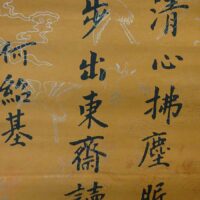 清心拂塵服
步出東齋讀
何紹基